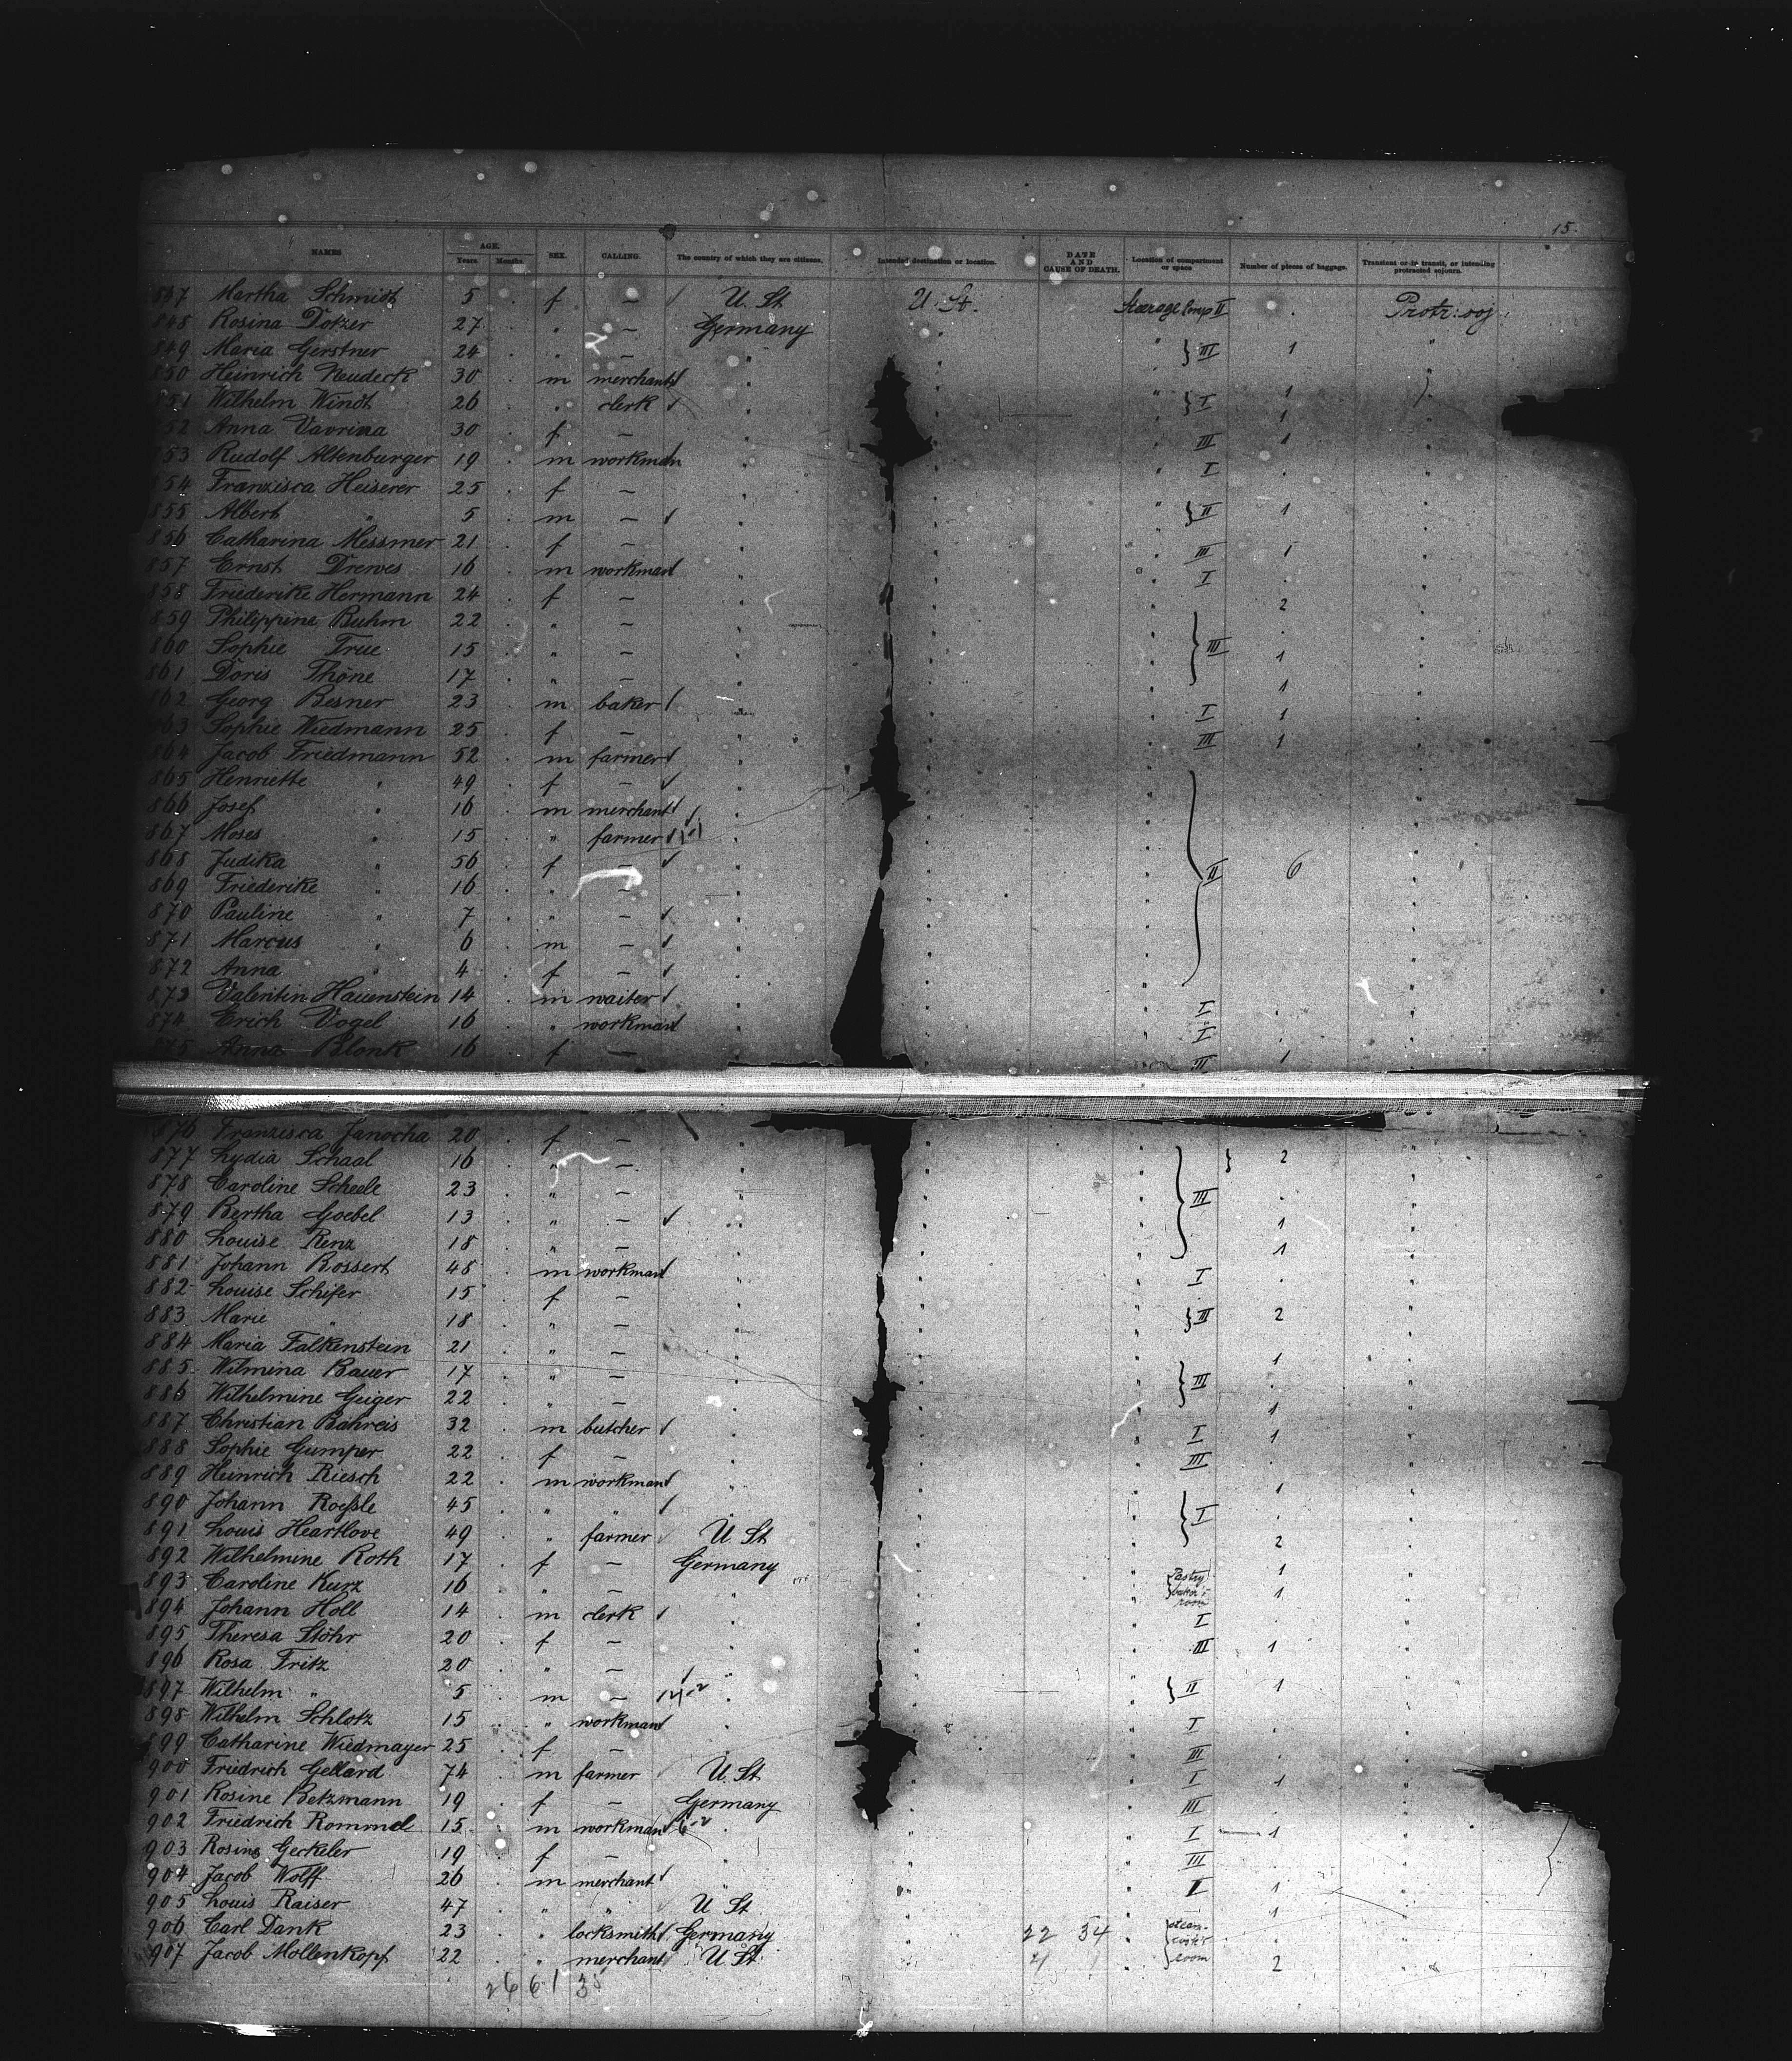 15.
NAMES AGE. Years. Months. SEX. CALLING. The country of which they are citizens. Intended destination or location. DATE AND CAUSE OF DEATH. Location of compartment or space Number of pieces of baggage. Transient or in transit, or intending protracted sojourn.
847 Martha Schmidt 5 f — U. St U. St. Steerage Cmp II Protr: soj
848 Rosina Dotzer 27 " — Germany
849 Maria Gerstner 24 " — " } III 1 "
850 Heinrich Neudeck 30 m merchant "
851 Wilhelm Windt 26 " clerk " } I 1
852 Anna Vavrina 30 f — " III 1
853 Rudolf Altenburger 19 m workman " I
854 Franzisca Heiserer 25 f — "
855 Albert " 5 m — " } II 1
856 Catharina Messmer 21 f — " III 1
857 Ernst Drewes 16 m workman " I
858 Friederike Hermann 24 f — " 2
859 Philippina Buhm 22 " — "
860 Sophie True 15 " — " } III 1
861 Doris Thöne 17 " — " 1
862 Georg Besner 23 m baker " I 1
863 Sophie Wiedmann 25 f — " III 1
864 Jacob Friedmann 52 m farmer "
865 Henriette " 49 f — "
866 Josef " 16 m merchant "
867 Moses " 15 " farmer "
868 Judika " 56 f — " } II 6
869 Friederike " 16 " — "
870 Pauline " 7 " — "
871 Marcus " 6 m — "
872 Anna " 4 f — "
873 Valentin Hauenstein 14 m waiter " I
874 Erich Vogel 16 " workman " I
875 Anna Blonk 16 f — III 1
876 Franzisca Janocha 20 f — "
877 Lydia Schaal 16 " — " } 2
878 Caroline Scheele 23 " — " } III
879 Bertha Goebel 13 " — " 1
880 Louise Renz 18 " — " 1
881 Johann Bossert 48 m workman " I
882 Louise Schifer 15 f — "
883 Marie " 18 " — " } III 2
884 Maria Falkenstein 21 " — " 1
885 Wilmina Bauer 17 " — " } III
886 Wilhelmine Geiger 22 " — " 1
887 Christian Bahreis 32 m butcher " I 1
888 Sophie Gumper 22 f — " III
889 Heinrich Riesch 22 m workman " 1
890 Johann Roessle 45 " " " } I
891 Louis Heartlove 49 " farmer U St 2
892 Wilhelmine Roth 17 f — Germany 1
893 Caroline Kurz 16 " — " } Pastry baker's room 1
894 Johann Holl 14 m clerk " I
895 Theresa Stöhr 20 f — " III 1
896 Rosa Fritz 20 " — "
897 Wilhelm " 5 m — " } II 1
898 Wilhelm Schlotz 15 " workman " I
899 Catharine Wiedmayer 25 f — " III
900 Friedrich Gellard 74 m farmer U. St I 1
901 Rosine Betzmann 19 f — Germany III
902 Friedrich Rommel 15 m workman " I 1
903 Rosine Geckeler 19 f — " III
904 Jacob Wolff 26 m merchant " I 1
905 Louis Kaiser 47 " " U St 1
906 Carl Dank 23 " locksmith Germany 22 34 } steam-cook's room
907 Jacob Mollenkopf 22 " merchant U St 2